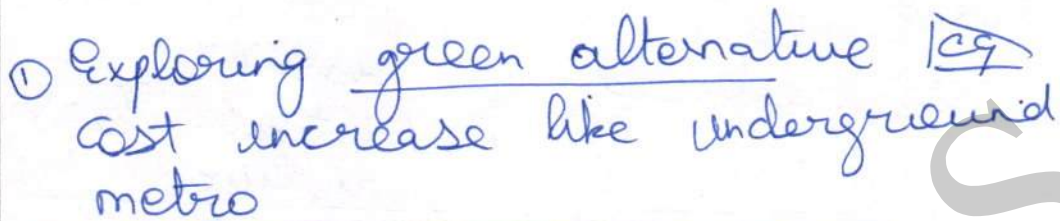 ① Exploring green alternative eg
cost increase like underground
metro